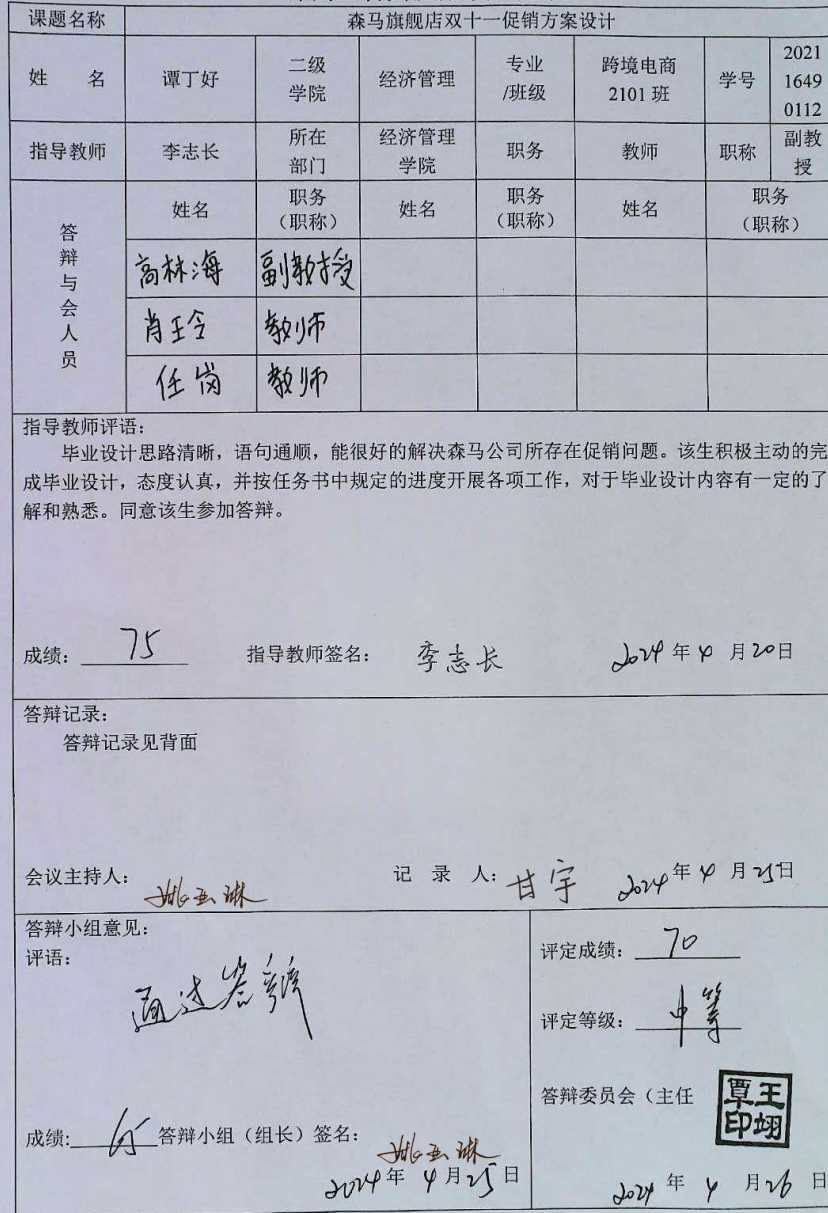 课题名称 森马旗舰店双十一促销方案设计
姓 名 谭丁好 二级学院 经济管理 专业/班级 跨境电商2101班 学号 2021 1649 0112
指导教师 李志长 所在部门 经济管理学院 职务 教师 职称 副教授
答辩与会人员 姓名 职务（职称） 姓名 职务（职称） 姓名 职务（职称）
高林海 副教授
肖王令 教师
任岗 教师
指导教师评语：
毕业设计思路清晰，语句通顺，能很好的解决森马公司所存在促销问题。该生积极主动的完
成毕业设计，态度认真，并按任务书中规定的进度开展各项工作，对于毕业设计内容有一定的了
解和熟悉。同意该生参加答辩。
成绩： 75 指导教师签名： 李志长 2024年4月20日
答辩记录：
答辩记录见背面
会议主持人： 姚亚琳 记 录 人： 甘宇 2024年4月25日
答辩小组意见：
评语：
通过答辩
成绩: 65 答辩小组（组长）签名： 姚亚琳
2024年4月25日
评定成绩： 70
评定等级： 中等
答辩委员会（主任 覃王翊印
2024年4月26日